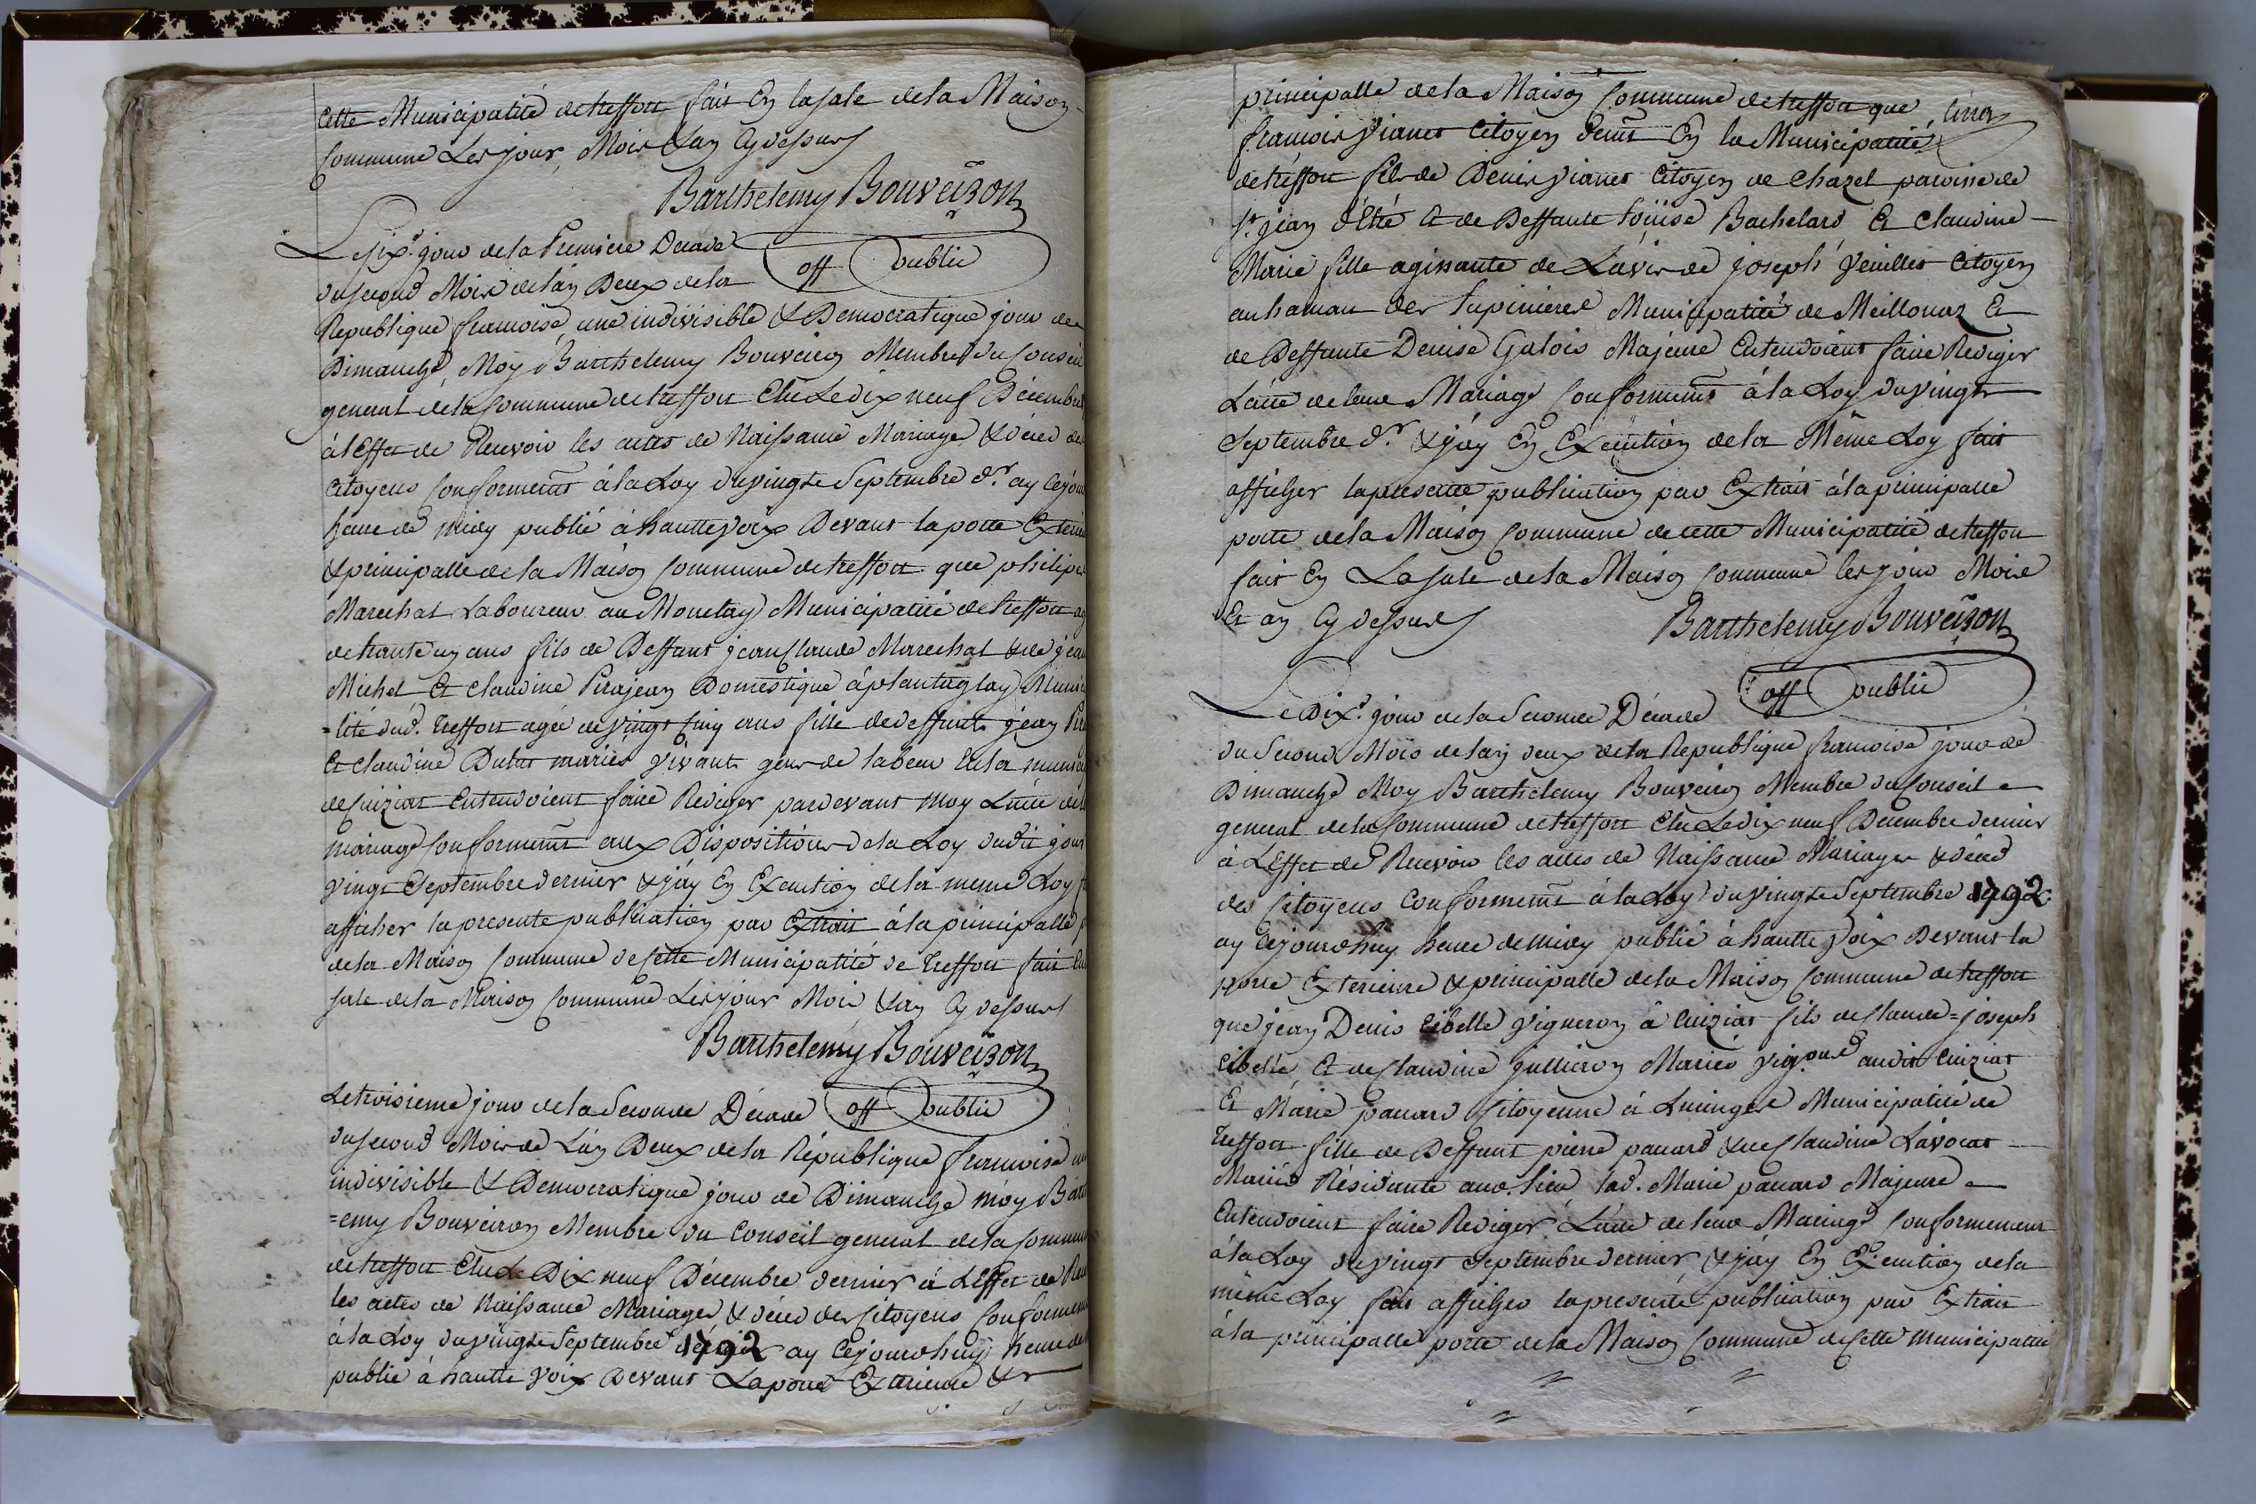 cette Municipalité de treffort fait En la sale de la Maison
Commune Les jour, Mois & an Cy dessus
Barthelemy Bouveiron
off public
Le six.e jour de la Premiere Decade
du second Mois de l'an Deux de la
Republique francoise une indivisible & Democratique jour de
Dimanche, Moy Barthelemy Bouveiron Membre du Conseil
general de la Commune de treffort Elu Le dix neuf Décembre
à l'Effet de Recevoir les actes de Naissance Mariages & deces des
Citoyens Conformemt à la Loy du vingt Septembre dr. ay Cejour
heure de midy publié à hautte voix Devant la porte Exterieu
& principalle de la Maison Commune de treffort que philipe
Marechal Laboureur au Monetay Municipalité de treffort ag
de trante un ans fils de Deffunt jean Claude Marechal & de jea
Michel Et Claudine Pirajean Domestique à plantaglay Munici
=lité dud. Treffort agée de vingt Cinq ans fille de deffunt jean Pira
Et Claudine Dutut mariés vivants gens de labeur En la munici
de Cuiziat Entendoient faire Rediger pardevant moy L'acte de
mariage Conformemt aux Dispositions de la Loy dudit jour
vingt Septembre dernier & j'ay En Execution de la meme Loy f
afficher la presente publication par Extrait à la principalle p
de la Maison Commune de Cette Municipalité de Treffort fait En
sale de la Maison Commune Les jour Mois & an Cy dessus
Barthelemy Bouveiron
off public
Le troisieme jour de la Seconde Décade
du second Mois de L'an Deux de la République francoise un
indivisible & Democratique jour de Dimanche moy Bart
=emy Bouveiron Membre du Conseil general de la Commun
de treffort Elu Le Dix neuf Décembre dernier à L'Effet de Rec
les actes de Naissance Mariages & déces des Citoyens Conformem
à la Loy du vingt Septembre 1792 ay Cejourdhuy heure de
publié à hautte voix Devant La porte Exterieure &
principalle de la Maison Commune de treffort que
francois vianet Citoyen demt En la Municipalité
de treffort fils de Denis vianet Citoyen de Chazel paroisse de
st. jean d'Etré Et de Deffunte Loüise Bachelard Et Claudine
Marie fille agissante de L'avis de joseph veuillet Citoyen
au hamau des Lupinieres Municipalité de Meillonaz Et
de Deffunte Denise Galois Majeure Entendoient faire Rediger
L'acte de leur Mariage Conformemt à la Loy du vingt
Septembre dr. & j'ay En Execution de la Même Loy fait
afficher la presente publication par Extrait à la principalle
porte de la Maison Commune de cette Municipalité de treffort
fait En La sale de la Maison Commune les jour Mois
Et an Cy dessus
Barthelemy Bouveiron
off public
Le Dix.e jour de la Seconde Décade
du Second Mois de l'an deux de la Republique francoise jour de
Dimanche Moy Barthelemy Bouveiron Membre du Conseil
general de la Commune de treffort Elu Le dix neuf Décembre dernier
à L'Effet de Recevoir les actes de Naissance Mariages & déces
des Citoyens Conformemt à la Loy du vingt Septembre 1792
ay Cejourdhuy heure de midy publié à hautte voix Devant la
porte Exterieure & principalle de la Maison Commune de treffort
que jean Denis Cibelle vigneron à Cuiziat fils de Claude=joseph
Cibelle, Et de Claudine jullieron Mariés audit Cuiziat
Et Marie panard Citoyenne à Lucinges Municipalité de
Treffort fille de Deffunt pierre panard & de Claudine Lavocat
Mariés Résidante aud. lieu lad. Marie panard Majeure
Entendoient faire Rediger L'acte de leur Mariage Conformement
à la Loy du vingt Septembre dernier, & j'ay En Execution de la
même Loy fait afficher la presente publication par Extrait
à la principalle porte de la Maison Commune de Cette municipalité